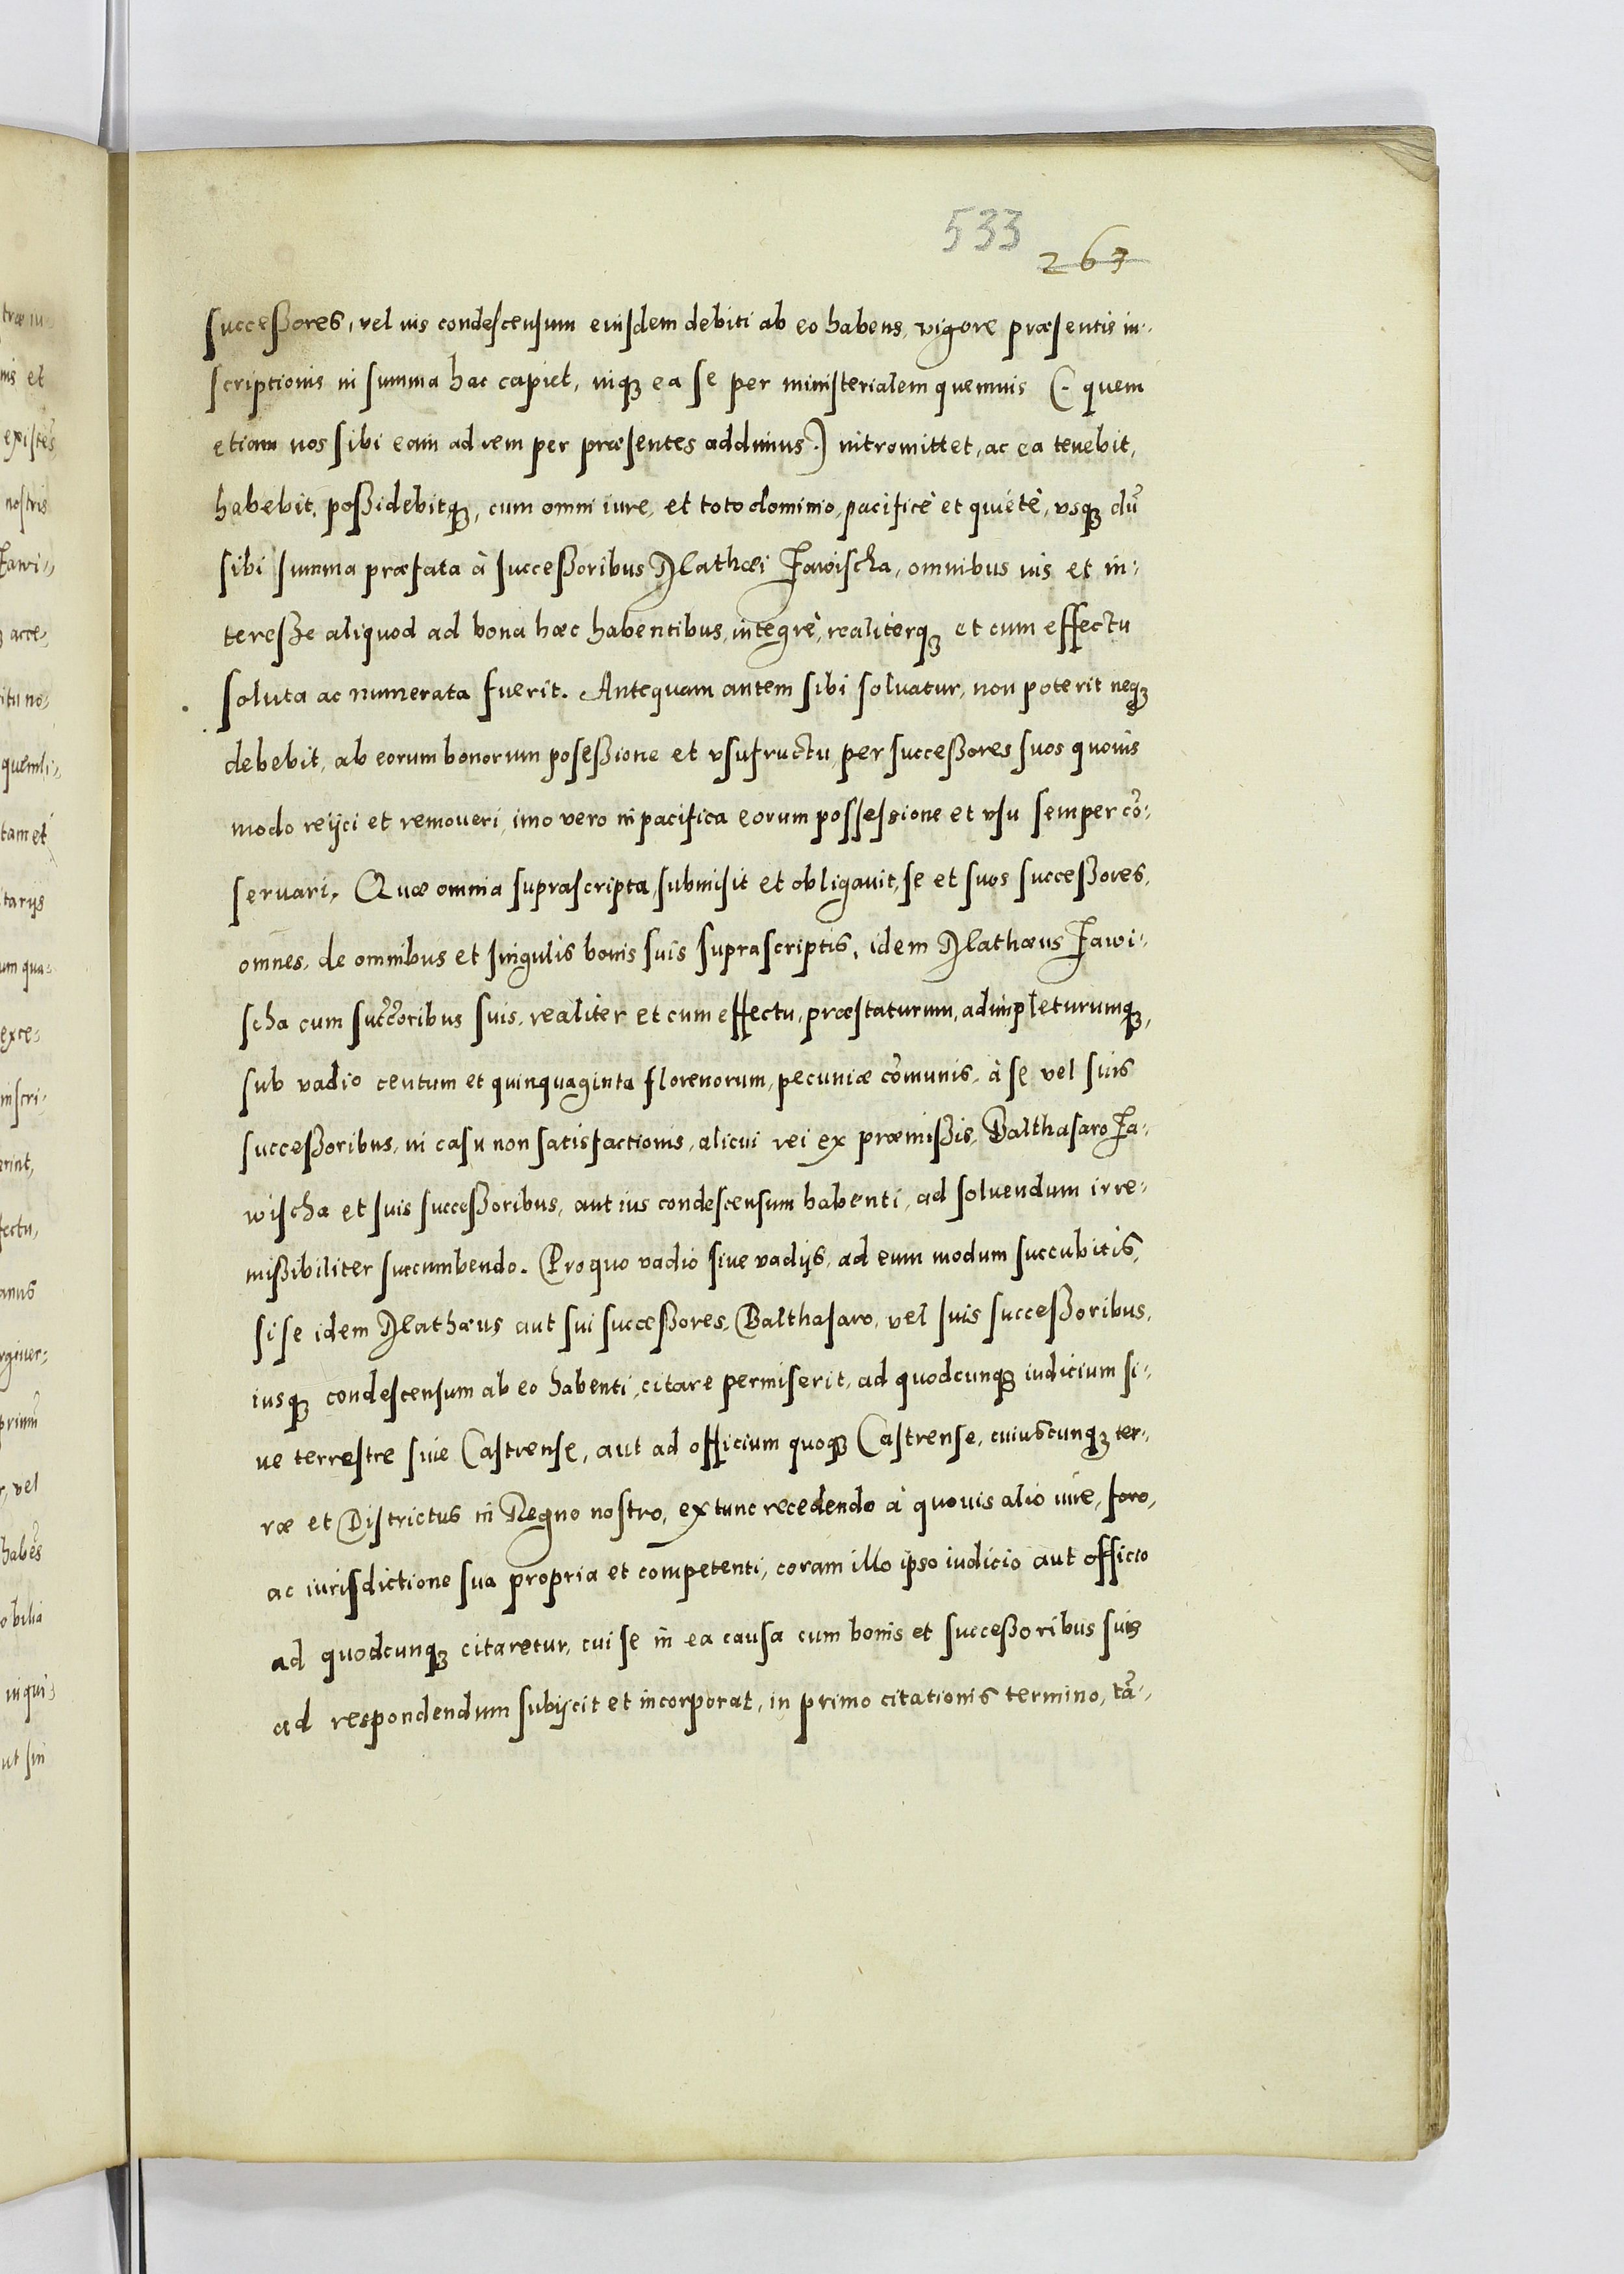 533
263
successores, vel ius condescensum eiusdem debiti ab eo habens, vigore præsentis in-
scriptionis in summa hac capiet, inq₃ ea se per ministerialem quemuis (. quem
etiam nos sibi eam ad rem per præsentes addimus .) intromittet, ac ea tenebit,
habebit, possidebitq₃, cum omni iure, et toto dominio, pacificè et quietè, vsq₃ dū
sibi summa præfata à successoribus Mathæi Jawischa, omnibus ius et in-
teresse aliquod ad bona hæc habentibus, integrè, realiterq₃ et cum effectu
soluta ac numerata fuerit. Antequam autem sibi soluatur, non poterit neq₃
debebit, ab eorum bonorum posessione et vsufructu, per successores suos quouis
modo reijci et remoueri, imo vero in pacifica eorum possessione et vsu semper cō-
seruari. Quæ omnia suprascripta, submisit et obligauit, se et suos successores,
omnes, de omnibus et singulis bonis suis suprascriptis, idem Mathæus Jawi-
scha cum succ̄oribus suis, realiter et cum effectu, præstaturum, adimpleturumq₃,
sub vadio centum et quinquaginta florenorum, pecuniæ cōmunis, à se vel suis
successoribus, in casu non satisfactionis, alicui rei ex præmissis, Balthasaro Ja-
wischa et suis successoribus, aut ius condescensum habenti, ad soluendum irre-
missibiliter succumbendo. Pro quo vadio siue vadijs, ad eum modum succubitis,
si se idem Mathæus aut sui successores, Balthasaro, vel suis successoribus,
iusq₃ condescensum ab eo habenti, citare permiserit, ad quodcunq₃ iudicium si-
ue terrestre siue Castrense, aut ad officium quoq₃ Castrense, cuiuscunq₃ ter-
ræ et Districtus in Regno nostro, extunc recedendo à quouis alio iure, foro,
ac iurisdictione sua propria et competenti, coram illo ipso iudicio aut officio
ad quodcunq₃ citaretur, cui se in ea causa cum bonis et successoribus suis
ad respondendum subijcit et incorporat, in primo citationis termino, tā-